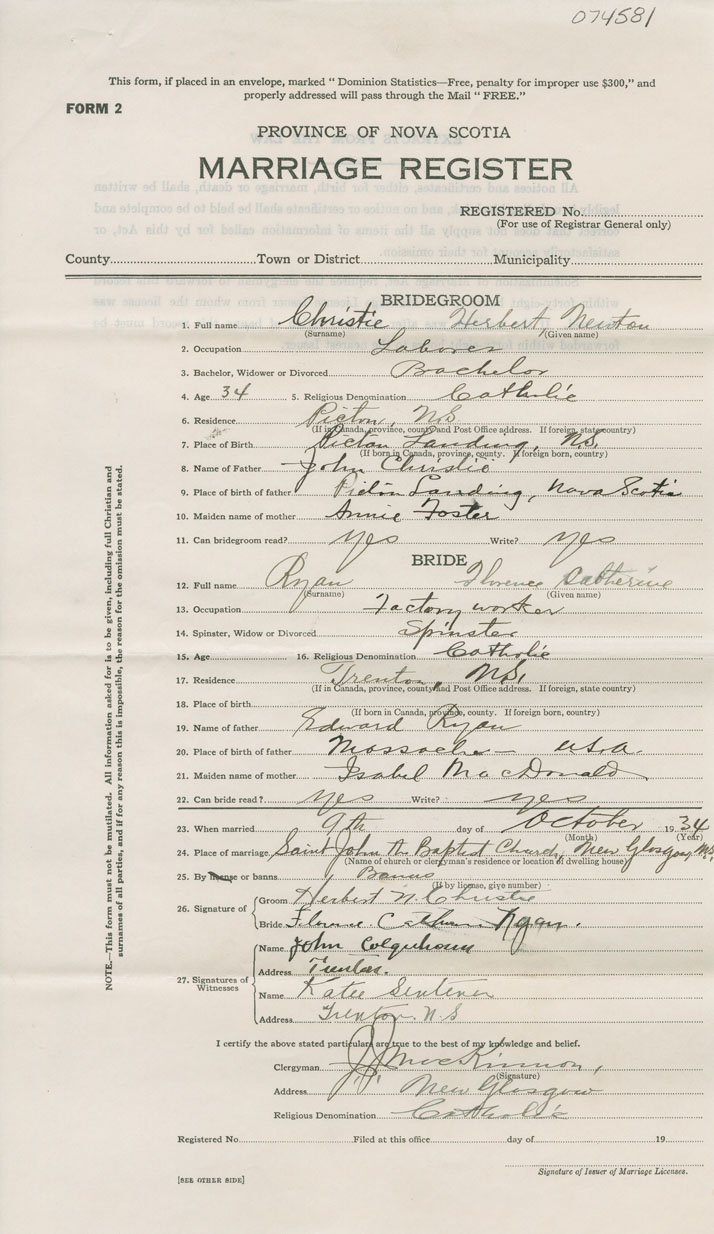 074581
This form, if placed in an envelope, marked “ Dominion Statistics—Free, penalty for improper use $300,” and
properly addressed will pass through the Mail “ FREE.”
FORM 2
PROVINCE OF NOVA SCOTIA
MARRIAGE REGISTER
REGISTERED No.
(For use of Registrar General only)
County Town or District Municipality
BRIDEGROOM
1. Full name Christie Herbert Newton
(Surname) (Given name)
2. Occupation Laborer
3. Bachelor, Widower or Divorced Bachelor
4. Age 34 5. Religious Denomination Catholic
6. Residence Pictou, N.S.
(If in Canada, province, county and Post Office address. If foreign, state country)
7. Place of Birth Pictou Landing, N.S.
(If born in Canada, province, county. If foreign born, country)
8. Name of Father John Christie
9. Place of birth of father Pictou Landing, Nova Scotia
10. Maiden name of mother Annie Foster
11. Can bridegroom read? yes Write? yes
BRIDE
12. Full name Ryan Florence Catherine
(Surname) (Given name)
13. Occupation Factory worker
14. Spinster, Widow or Divorced Spinster
15. Age 16. Religious Denomination Catholic
17. Residence Trenton, N.S.
(If in Canada, province, county and Post Office address. If foreign, state country)
18. Place of Birth
(If born in Canada, province, county. If foreign born, country)
19. Name of father Edward Ryan
20. Place of birth of father U.S.A.
21. Maiden name of mother Isabel MacDonald
22. Can bride read? yes Write? yes
23. When married 9th day of October 1934
(Month) (Year)
24. Place of marriage Saint John the Baptist Church, New Glasgow, N.S.
(Name of church or clergyman's residence or location of dwelling house)
25. By license or banns Banns
(If by license, give number)
26. Signature of
Groom Herbert N. Christie
Bride Florence Catherine Ryan.
27. Signatures of Witnesses
Name John Colquhoun
Address Trenton.
Name Katie
Address Trenton N.S
I certify the above stated particulars are true to the best of my knowledge and belief.
Clergyman MacKinnon,
(Signature)
Address New Glasgow
Religious Denomination Catholic
Registered No. Filed at this office day of 19
Signature of Issuer of Marriage Licenses.
[SEE OTHER SIDE]
NOTE.—This form must not be mutilated. All information asked for is to be given, including full Christian and
surnames of all parties, and if for any reason this is impossible, the reason for the omission must be stated.